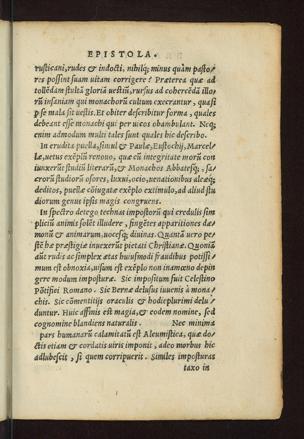 EPISTOLA.
rusticani, rudes & indocti, nihilq; minus quàm pasto/
res possint suam uitam corrigere? Præterea quæ ad
tollēdam stultā gloriā uestiū, rursus ad cohercēdā illo/
rū insaniam qui monachorū cultum execrantur, quasi
per se mala sit uestis. Et obiter describitur forma, quales
debeant esse monachi qui per uicos obambulant. Neq;
enim admodum multi tales sunt quales hic describo.
In erudita puella, simul & Paulæ, Eustochij, Marcel/
læ, uetus exēplū renouo, quæ cū integritate morū con
iunxerūt studiū literarū, & Monachos Abbatesq;, sa/
crorū studiorū osores, luxui, ocio, uenationibus aleæq;
deditos, puellæ cōiugatæ exēplo extimulo, ad aliud stu/
diorum genus ipsis magis congruens.
In spectro detego technas impostorū qui credulis sim
plicium animis solēt illudere, fingētes apparitiones dæ/
monū & animarum, uocesq; diuinas. Quantā uero pe/
stē hæ præstigiæ inuexerūt pietati Christianæ. Quoniā
aūt rudis ac simplex ætas huiusmodi fraudibus potissi/
mum est obnoxia, uisum est exēplo non inamœno depin
gere modum imposturæ. Sic impositum fuit Celestino
Pōtifici Romano. Sic Bernæ delusus iuuenis à mona/
chis. Sic cōmentitijs oraculis & hodie plurimi delu/
duntur. Huic affinis est magia, & eodem nomine, sed
cognomine blandiens naturalis. Nec minima
pars humanarū calamitatū est Alcumistica, quæ do/
ctis etiam & cordatis uiris imponit, adeo morbus hic
adlubescit, si quem corripuerit. Similes imposturas
taxo in